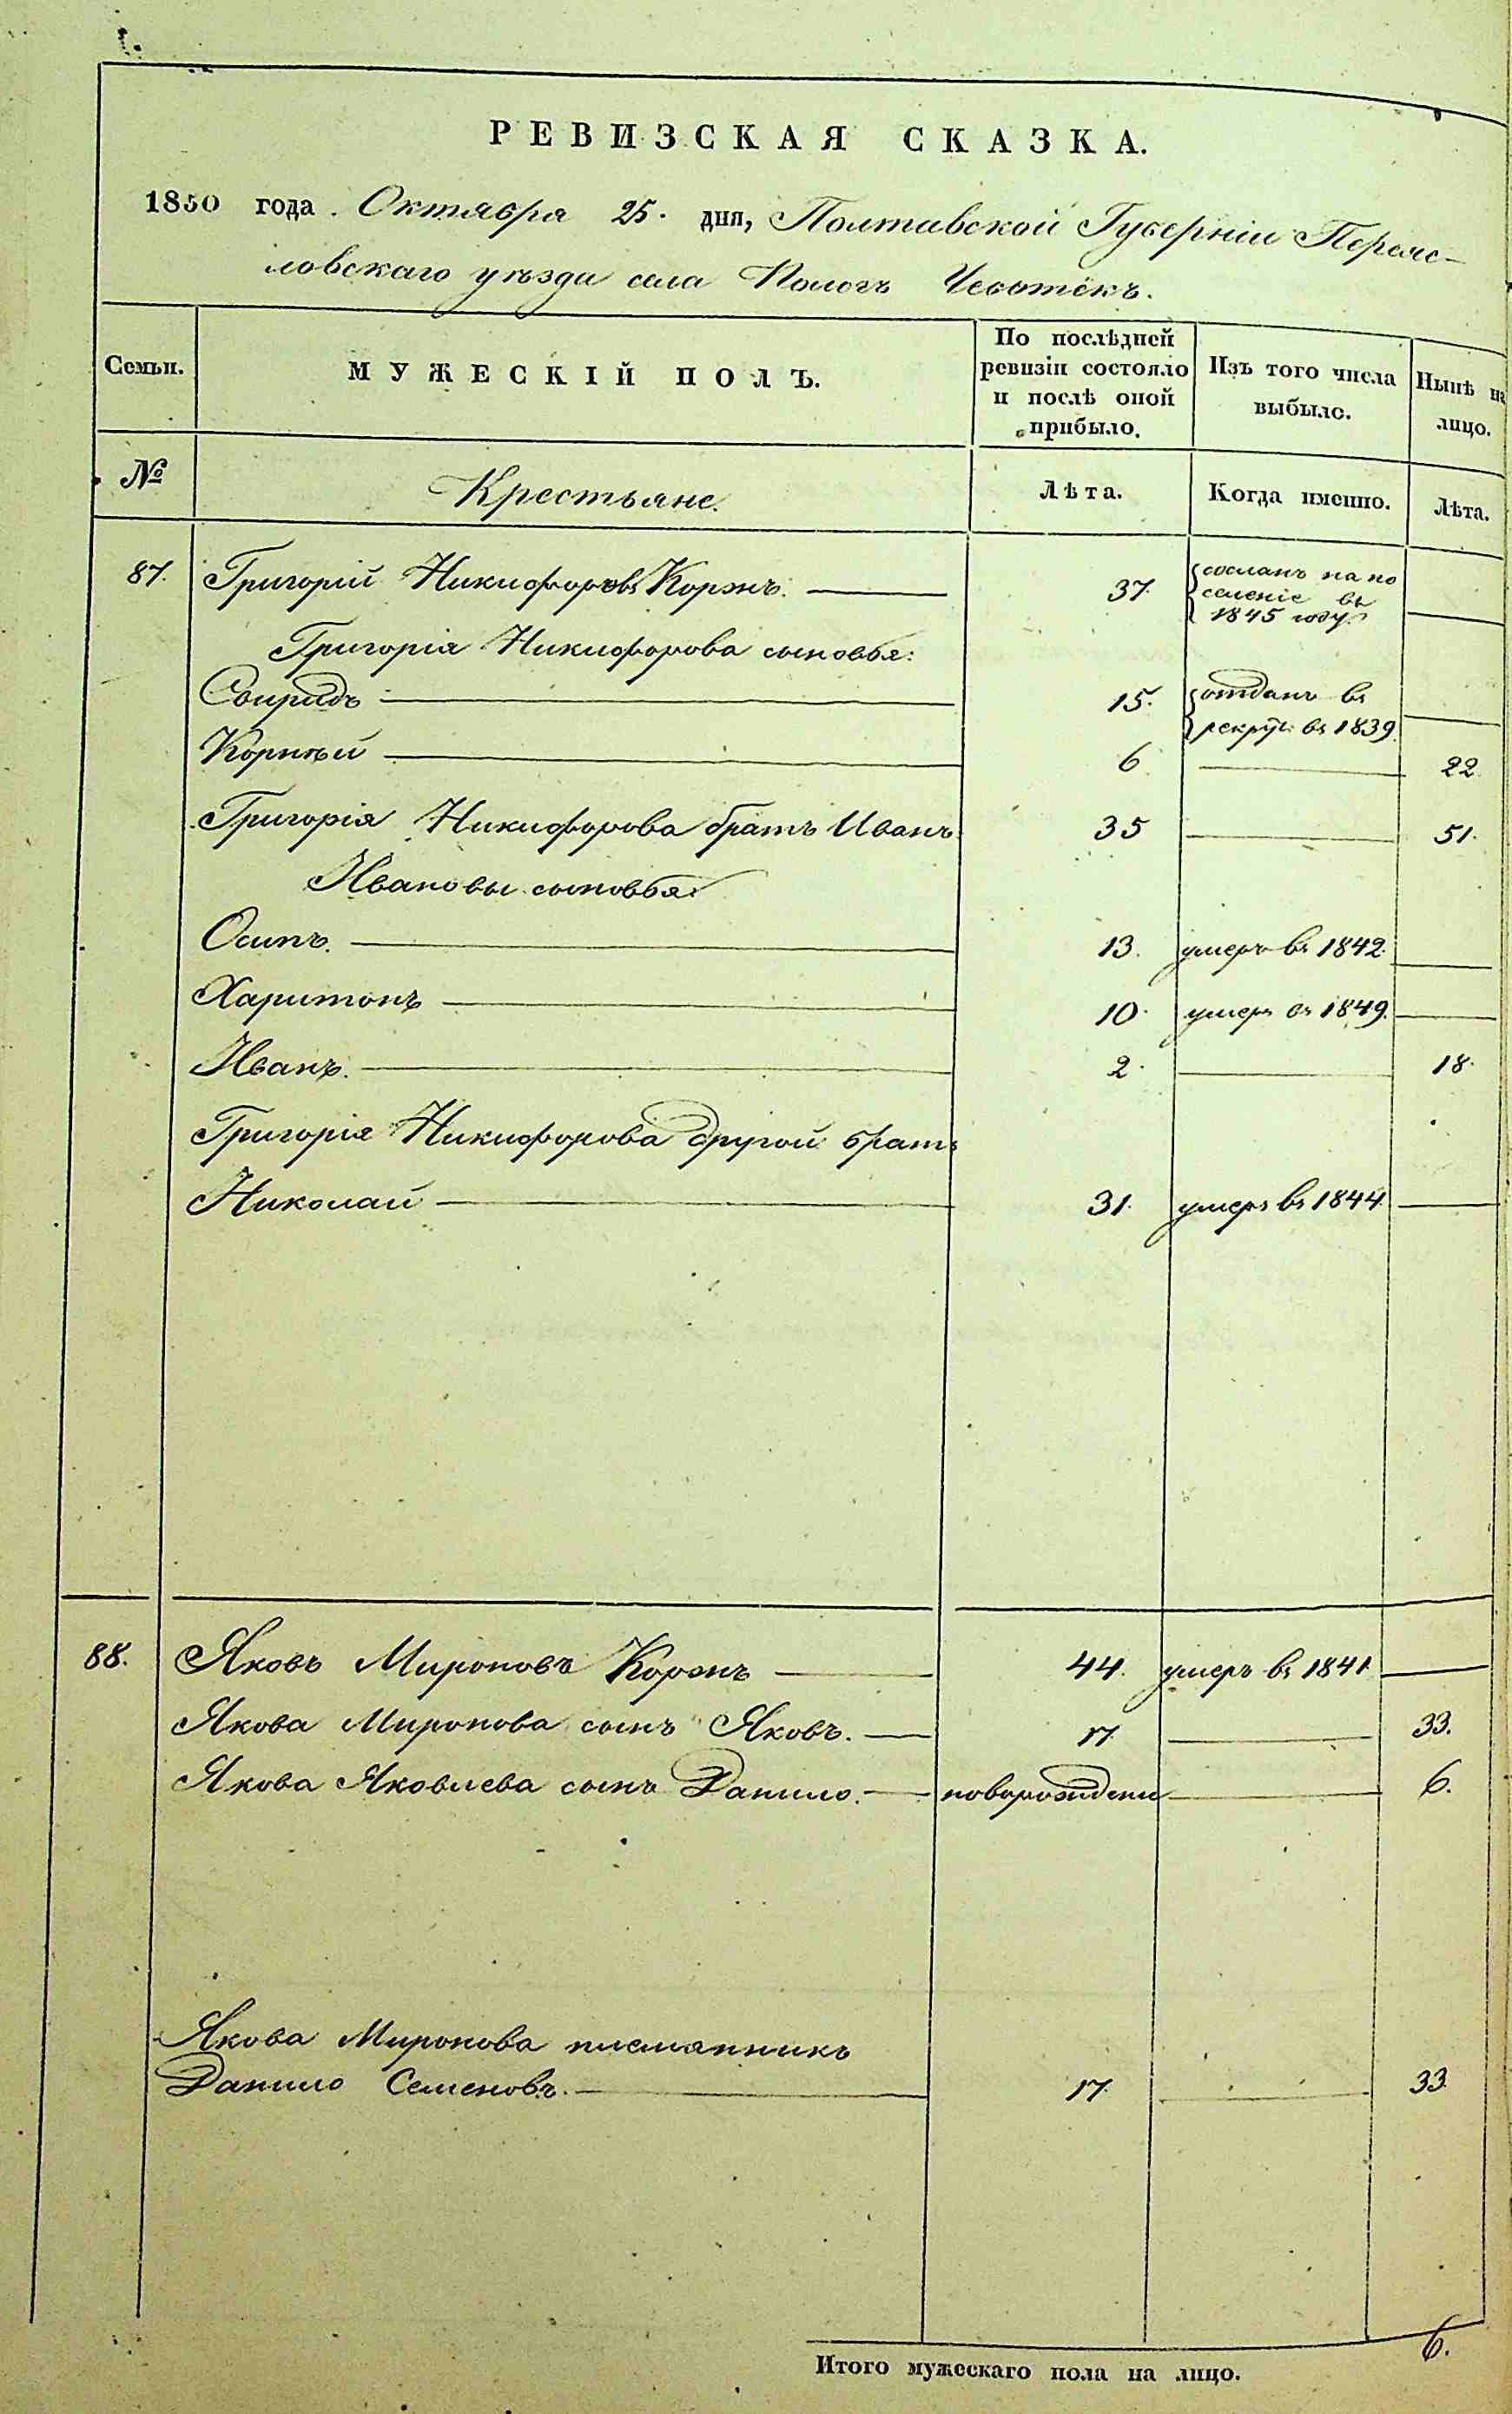 РЕВИЗСКАЯ СКАЗКА.
1850 года. Октября 25. дня, Полтавской Губерніи Переяс-
ловскаго уѣзда села Пологъ Чоботёкъ.
Семьи.
МУЖЕСКІЙ ПОЛЪ.
По послѣдней ревизіи состояло и послѣ оной прибыло.
Изъ того числа выбыло.
Нынѣ на лицо.
№
Крестьяне.
Лѣта.
Когда именно.
Лѣта.
87. Григорій Никифоровъ Коржъ. 37. сосланъ на по
селеніе въ
1845 году.
Григорія Никифорова сыновья:
Свиридъ 15. отданъ въ
рекруты въ 1839.
Корнѣй 6 22.
Григорія Никифорова братъ Иванъ 35 51.
Ивановы сыновья:
Осипъ. 13. умеръ въ 1842.
Харитонъ 10. умеръ въ 1849.
Иванъ. 2. 18.
Григорія Никифорова другой братъ
Николай 31. умеръ въ 1844.
88. Яковъ Мироновъ Коржъ 44. умеръ въ 1841.
Якова Миронова сынъ Яковъ. 17. 33.
Якова Яковлева сынъ Данило. новорожденъ 6.
Якова Миронова племянникъ
Данило Семеновъ. 17. 33.
Итого мужескаго пола на лицо. 6.